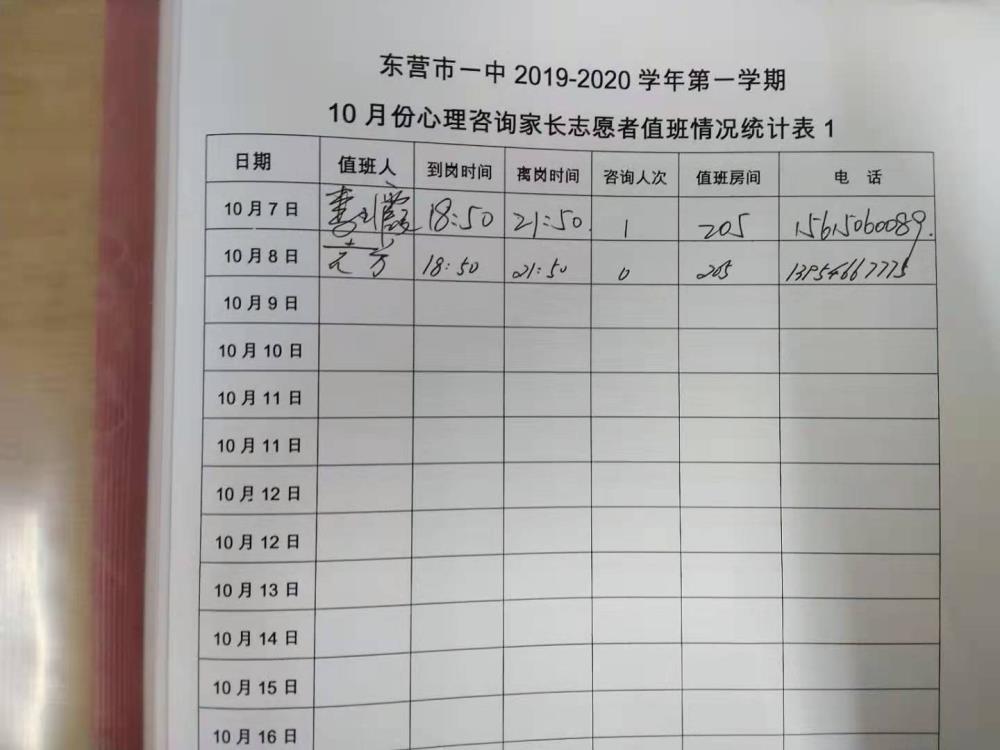 东营市一中 2019-2020 学年第一学期
10 月份心理咨询家长志愿者值班情况统计表 1
日期 值班人 到岗时间 离岗时间 咨询人次 值班房间 电 话
10 月 7 日 18:50 21:50. 1 205 15615060089.
10 月 8 日 18:50 21:50 0 205
10 月 9 日
10 月 10 日
10 月 11 日
10 月 11 日
10 月 12 日
10 月 12 日
10 月 13 日
10 月 14 日
10 月 15 日
10 月 16 日